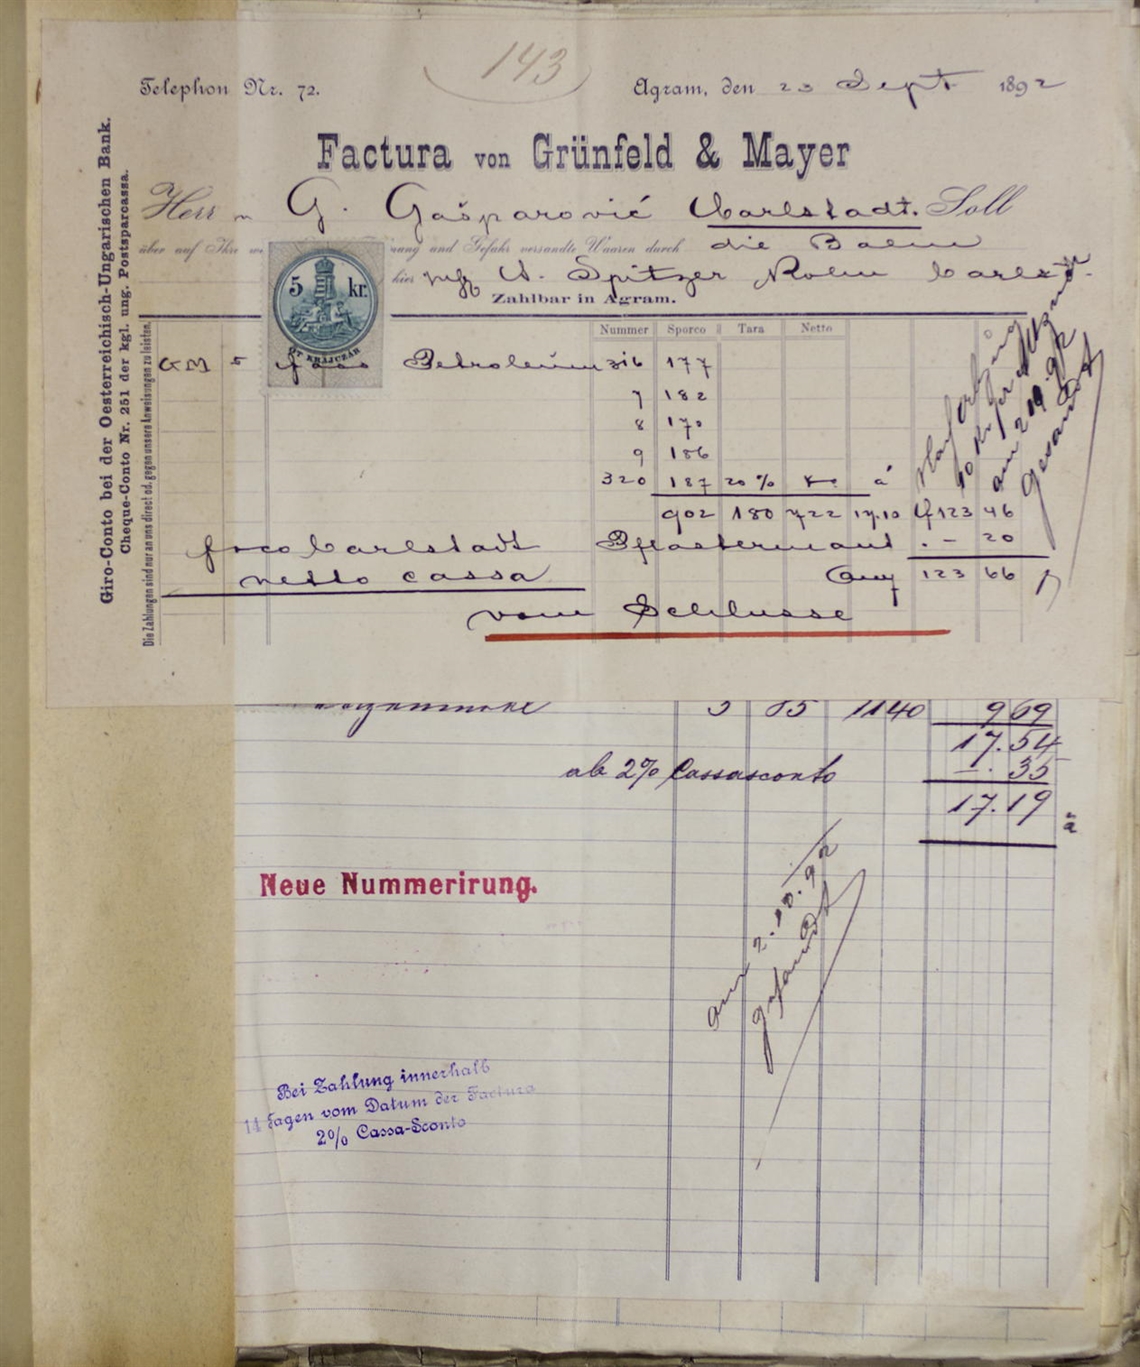 143
Telephon Nr. 72.
Agram, den 23 Sept 1892
Factura von Grünfeld & Mayer
Herrn G. Gašparović Carlstadt. Soll
über auf Ihre nung und Gefahr versandte Waaren durch die Bahn
hier A. Spitzer Carlst
Zahlbar in Agram.
5 kr.
ÖT KRAJCZÁR
Giro-Conto bei der Oesterreichisch-Ungarischen Bank.
Cheque-Conto Nr. 251 der kgl. ung. Postsparcassa.
Die Zahlungen sind nur an uns direct od. gegen unsere Anweisungen zu leisten.
Nummer Sporco Tara Netto
GM 5 fass Petroleum 316 177
7 182
8 170
9 186
320 187 20% Ko. á
902 180 722 17.10 f 123 46
fraco Carlstadt Pflastermaut . – 20
netto cassa 123 66
vom Schlusse
am 2/10.92
gesandt
5 85 1140 9 69
17.54
ab 2% Cassasconto –. 35
17.19
Neue Nummerirung.
am 2.10.92
gesandt
Bei Zahlung innerhalb
14 Tagen vom Datum der Factura
2% Cassa-Sconto